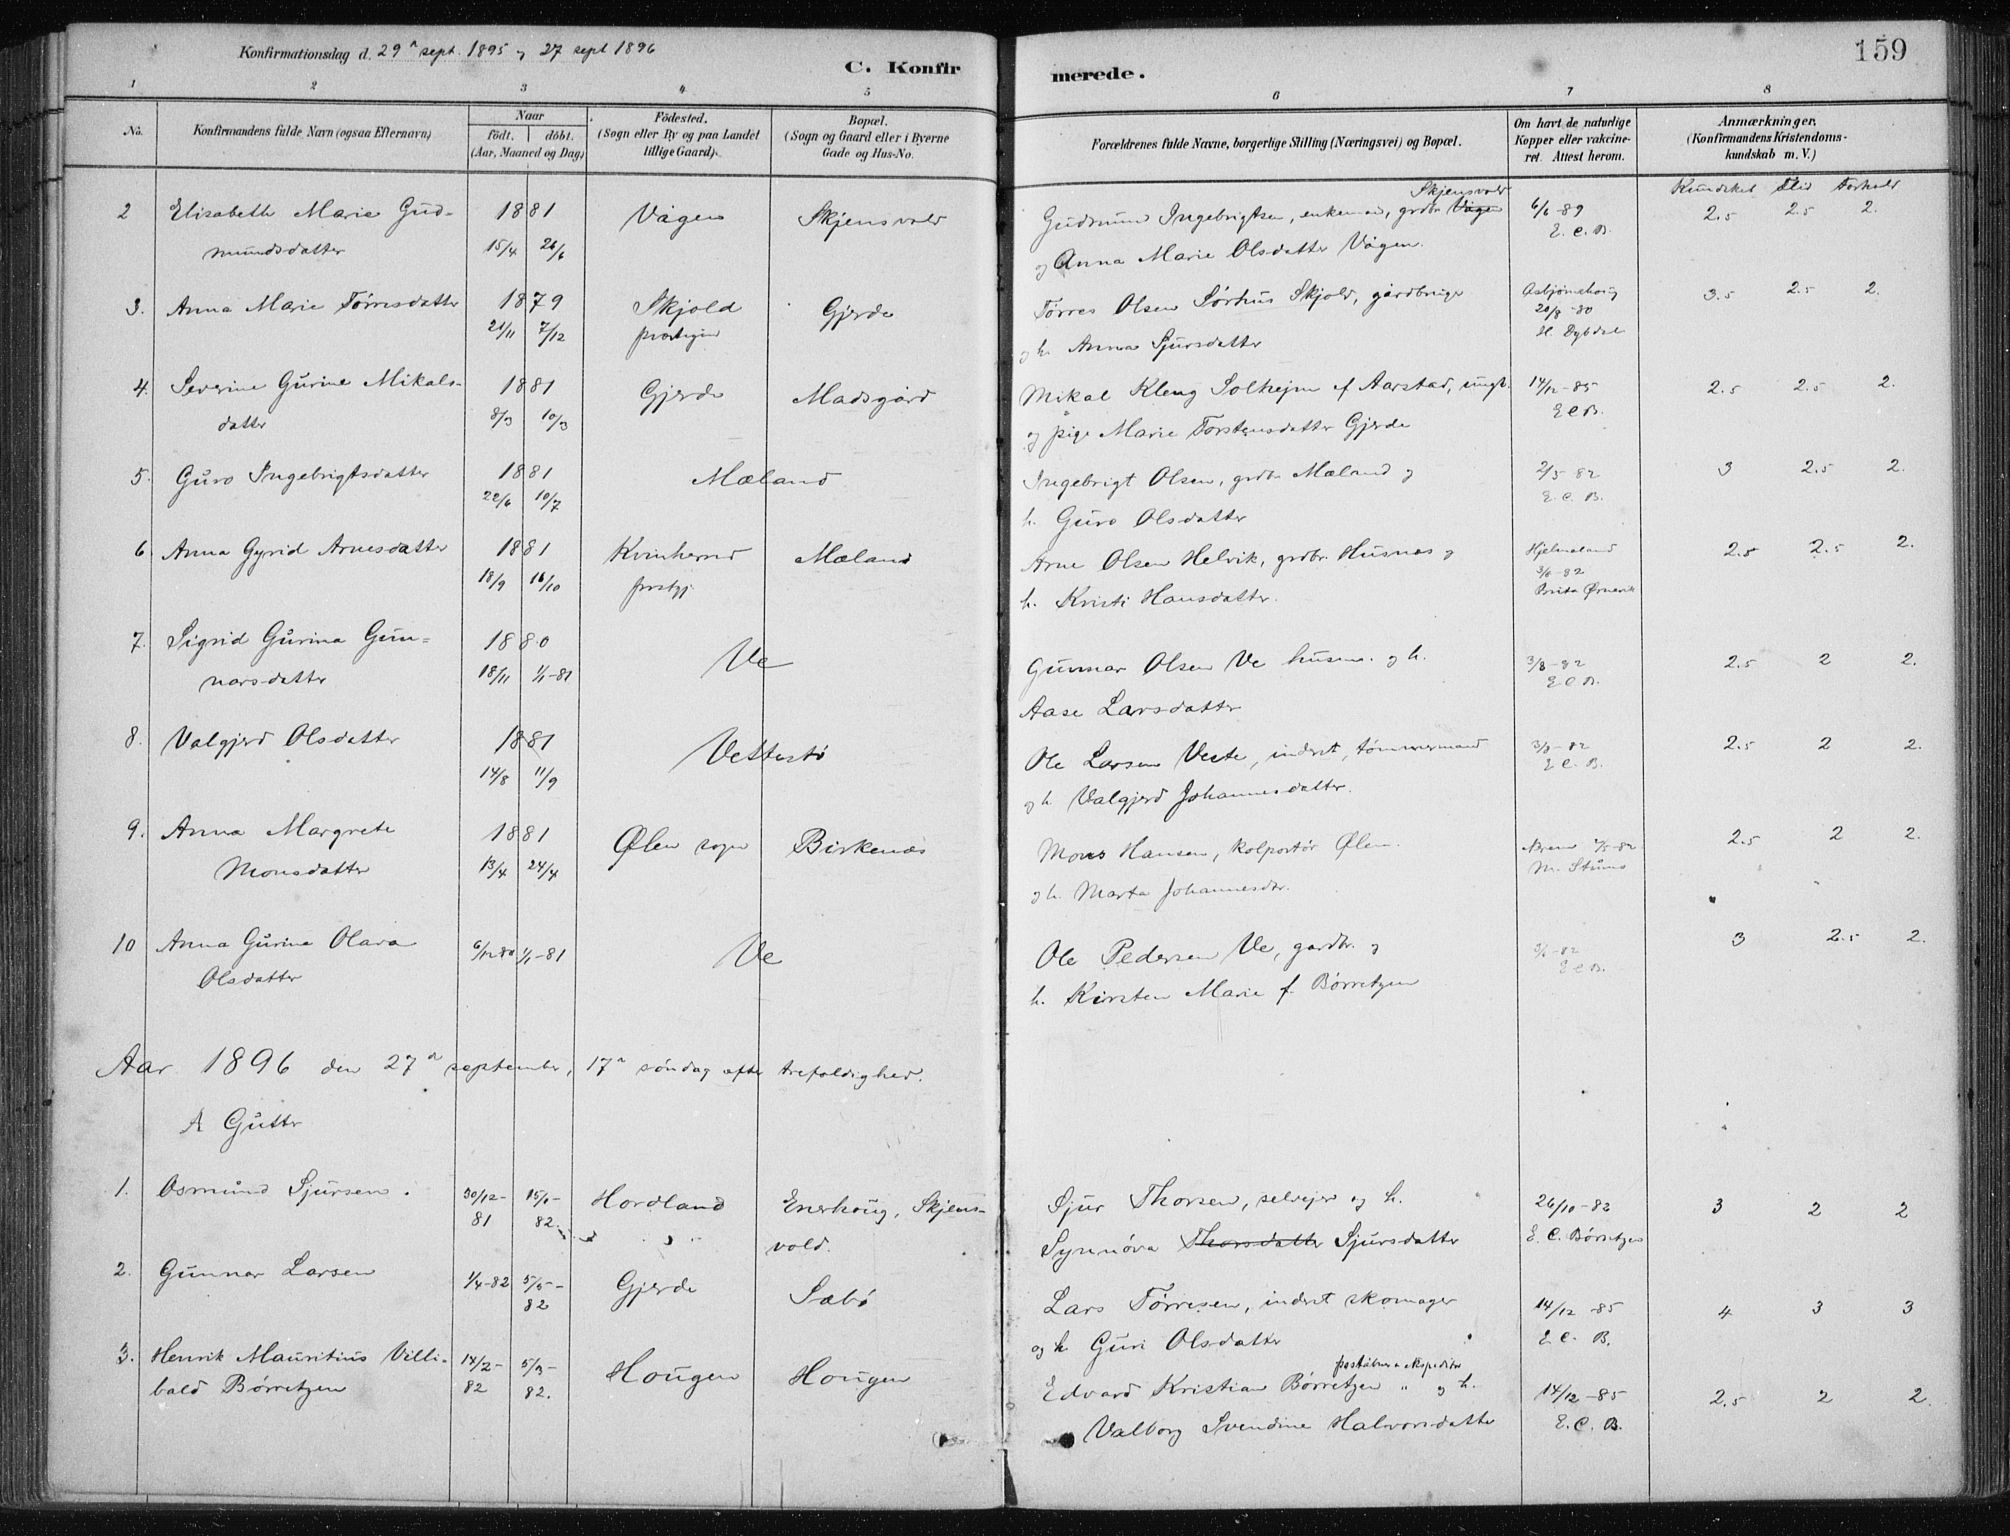 Konfirmationsdag d. 29ᵈ sept. 1895 og 27 sept 1896
C. Konfirmerede.
159
1 2 3 4 5 6 7 8
No. Konfirmandens fulde Navn (ogsaa Efternavn) Naar födt. döbt. (Aar, Maaned og Dag) Födested. (Sogn eller By og paa Landet tillige Gaard). Bopæl. (Sogn og Gaard eller i Byerne Gade og Hus-No. Forældrenes fulde Navne, borgerlige Stilling (Næringsvei) og Bopæl. Om havt de naturlige Kopper eller vakcineret. Attest herom. Anmærkninger. (Konfirmandens Kristendomskundskab m. V.)
Kundskab Flid Forhold
Skjensvold
2 Elisabeth Marie Gud- 1881 Vågen Skjensvold Gudmund Ingebrigtsen, enkemand, grdbr. Vågen 6/6-89 2.5 2.5 2.
mundsdatter 15/4 26/6 og Anna Marie Olsdatter Vågen. E. C. B.
3. Anna Marie Tørresdatter 1879 Skjold Gjerde Tørres Olsen Sørhus Skjold, gårdbruger Asbjørnehoug 3.5 2.5 2.
21/11 7/12 prestegjeld og h. Anna Sjursdatter 20/8-80
H. Dybdal
4. Severine Gurine Mikals- 1881 Gjerde Madsgård Mikal Kleng Solhejm f Aarstad, ungk. 14/12-85 2.5 2.5 2.
datter 8/3 10/3 og pige Marie Torstensdatter Gjerde E C B.
5. Guro Ingebrigtsdatter 1881 Mæland Ingebrigt Olsen, grdbr. Mæland og 2/5-82 3 2.5 2.
22/6 10/7 h. Guro Olsdatter E. C. B.
6 Anna Gyrid Arnesdatter 1881 Kvinherred Mæland Arne Olsen Helvik, grdbr. Husnæs og Hjelmeland 2.5 2.5 2.
18/9 16/10 prestgj. h. Kristi Hansdatter. 3/6-82
7. Sigrid Gurina Gun- 1880 Ve Gunnar Olsen Ve husm. og h. 3/8-82 2.5 2 2.
narsdatter 18/11 1/1-81 Aase Larsdatter E C B.
8. Valgjerd Olsdatter 1881 Vettestø Ole Larsen Veste, inderst, tømmermand 3/8-82 2.5 2 2.
14/8 11/9 og h. Valgjerd Johannesdatter. E C. B.
9. Anna Margrete 1881 Ølen sogn Birkenæs Mons Hansen, kolportør Ølen. 2.5 2 2.
Monsdatter 13/4 24/4 og h. Marta Johannesdtr.
10 Anna Gurine Olava 6/12-80 1/1-81 Ve Ole Pedersen Ve, gardbr. og 3 2.5 2.
Olsdatter h. Kirsten Marie f. Børretzen E C B.
Aar 1896 den 27ᵈ september, 17ᵈ søndag efter trefoldighed.
A Gutter
1. Osmund Sjursen. 30/12- 15/1- Hordland Enerhoug, Skjens- Sjur Thorsen, selvejer og h. 26/10-82 3 2 2
81 82. vold. Synnøva Thorsdatter Sjursdatter E. C. Børretzen
2. Gunnar Larsen 1/4-82 5/5- Gjerde Sæbø Lars Tørresen, inderst skomager 14/12-85 4 3 3
82 og h Guri Olsdatter E. C. B.
poståbner & ekspeditør
3. Henrik Mauritius Villi- 14/2- 5/3- Hougen Hougen Edvard Kristian Børretzen " og h. 14/12-85 2.5 2 2.
bald Børretzen 82 82. Valborg Svendine Halvorsdatter E. C. B.